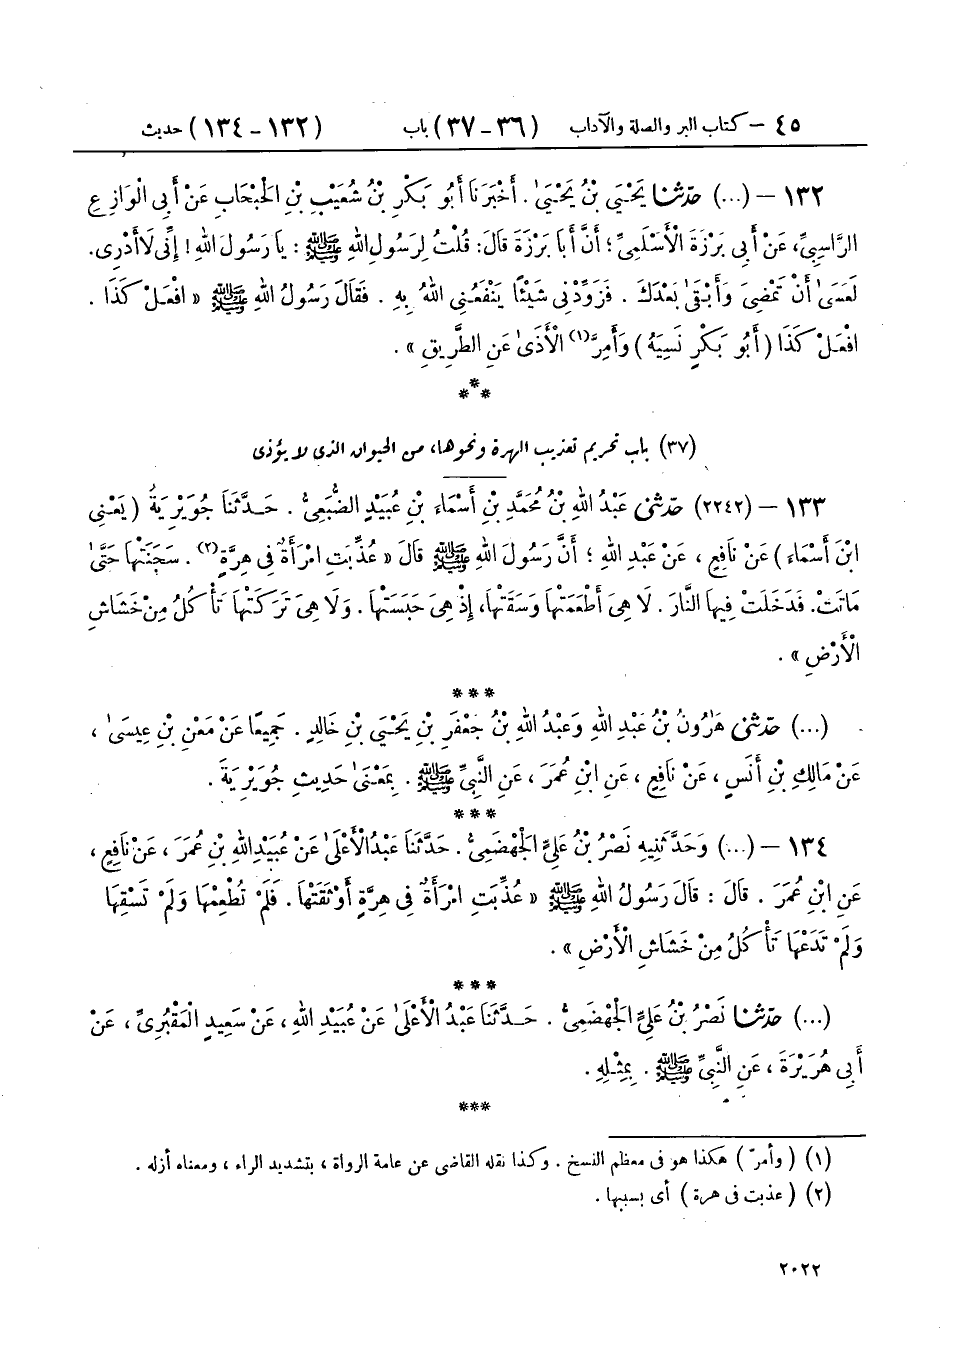 ٤٥ - كتاب البر والصلة والآداب (٣٦-٣٧) باب (١٣٢-١٣٤) حديث
١٣٢ - (...) حدّثنا يَحْيَىٰ بْنُ يَحْيَىٰ . أَخْبَرَنَا أَبُو بَكْرِ بْنُ شُعَيْبِ بْنِ الْحَبْحَابِ عَنْ أَبِى الْوَازِعِ
الرَّاسِبِيِّ، عَنْ أَبِى بَرْزَةَ الْأَسْلَمِيِّ ؛ أَنَّ أَبَا بَرْزَةَ قَالَ: قُلْتُ لِرَسُولِ اللهِ ﷺ : يَا رَسُولَ اللهِ ! إِنِّى لَا أَدْرِى.
لَعَسَىٰ أَنْ تَمْضِىَ وَأَبْقَىٰ بَعْدَكَ . فَزَوِّدْنِى شَيْئًا يَنْفَعُنِى اللهُ بِهِ . فَقَالَ رَسُولُ اللهِ ﷺ « افْعَلْ كَذَا .
افْعَلْ كَذَا ( أَبُو بَكْرٍ نَسِيَهُ ) وَأَمِرَّ(١) الْأَذَىٰ عَنِ الطَّرِيقِ » .
***
(٣٧) باب تحريم تعذيب الهرة ونحوها، من الحيوان الذى لا يؤذى
١٣٣ - (٢٢٤٢) حدّثنى عَبْدُ اللهِ بْنُ مُحَمَّدِ بْنِ أَسْمَاءَ بْنِ عُبَيْدٍ الضُّبَعِىُّ . حَدَّثَنَا جُوَيْرِيَةُ ( يَعْنِى
ابْنَ أَسْمَاءَ ) عَنْ نَافِعٍ ، عَنْ عَبْدِ اللهِ ؛ أَنَّ رَسُولَ اللهِ ﷺ قَالَ « عُذِّبَتِ امْرَأَةٌ فِى هِرَّةٍ(٢) . سَجَنَتْهَا حَتَّىٰ
مَاتَتْ. فَدَخَلَتْ فِيهَا النَّارَ . لَا هِىَ أَطْعَمَتْهَا وَسَقَتْهَا، إِذْ هِىَ حَبَسَتْهَا . وَلَا هِىَ تَرَكَتْهَا تَأْكُلُ مِنْ خَشَاشِ
الْأَرْضِ » .
***
(...) حدّثنى هَٰرُونُ بْنُ عَبْدِ اللهِ وَعَبْدُ اللهِ بْنُ جَعْفَرِ بْنِ يَحْيَىٰ بْنِ خَالِدٍ . جَمِيعًا عَنْ مَعْنِ بْنِ عِيسَىٰ ،
عَنْ مَالِكِ بْنِ أَنَسٍ ، عَنْ نَافِعٍ ، عَنِ ابْنِ عُمَرَ ، عَنِ النَّبِىِّ ﷺ . بِمَعْنَىٰ حَدِيثِ جُوَيْرِيَةَ .
***
١٣٤ - (...) وَحَدَّثَنِيهِ نَصْرُ بْنُ عَلِىٍّ الْجَهْضَمِىُّ . حَدَّثَنَا عَبْدُ الْأَعْلَىٰ عَنْ عُبَيْدِ اللهِ بْنِ عُمَرَ ، عَنْ نَافِعٍ ،
عَنِ ابْنِ عُمَرَ . قَالَ : قَالَ رَسُولُ اللهِ ﷺ « عُذِّبَتِ امْرَأَةٌ فِى هِرَّةٍ أَوْثَقَتْهَا . فَلَمْ تُطْعِمْهَا وَلَمْ تَسْقِهَا
وَلَمْ تَدَعْهَا تَأْكُلُ مِنْ خَشَاشِ الْأَرْضِ » .
***
(...) حدّثنا نَصْرُ بْنُ عَلِىٍّ الْجَهْضَمِىُّ . حَدَّثَنَا عَبْدُ الْأَعْلَىٰ عَنْ عُبَيْدِ اللهِ ، عَنْ سَعِيدٍ الْمَقْبُرِىِّ ، عَنْ
أَبِى هُرَيْرَةَ ، عَنِ النَّبِىِّ ﷺ . بِمِثْلِهِ .
***
(١) ( وأمرّ ) هكذا هو فى معظم النسخ . وكذا نقله القاضى عن عامة الرواة ، بتشديد الراء ، ومعناه أزله .
(٢) ( عذبت فى هرة ) أى بسببها .
٢٠٢٢